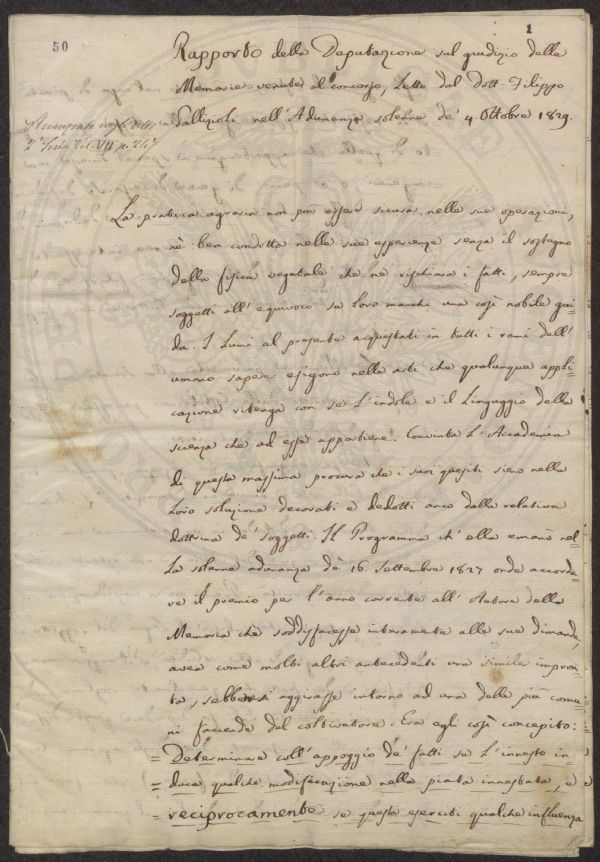 1
50
Rapporto della Deputazione sul giudizio delle
Memorie venute al concorso, Letto dal Dott. Filippo
Gallizioli nell'Adunanza solenne de' 4. Ottobre 1829.
Stampato negli Atti
Serie Vol. VII p. 217
La pratica agraria non può essere sicura nelle sue operazioni,
nè ben condotta nelle sue esperienze senza il sostegno
della fisica vegetabile che ne rischiara i fatti, sempre
soggetti all'equivoco se loro manchi una così nobile gui=
da. I Lumi al presente acquistati in tutti i rami dell'
umano sapere esigono nelle arti che qualunque appli=
cazione ritenga con se L'indole e il Linguaggio della
scienza che ad essa appartiene. Convinta L'Accademia
di questa massima procura che i suoi quesiti sieno nella
Loro soluzione decorati e dedotti anco dalla relativa
dottrina de' soggetti. Il Programma ch'ella emanò nel=
La solenne adunanza de' 16. Settembre 1827 onde accorda=
re il premio per l'anno corrente all'Autore della
Memoria che soddisfacesse interamente alle sue dimande,
avea come molti altri antecedenti una simile impron=
ta, sebbene si aggirasse intorno ad una delle più comu=
ni faccende del coltivatore. Era egli così concepito:
= Determinare coll'appoggio de' fatti se L'innesto in=
= duca qualche modificazione nella pianta innestata, e
reciprocamente se questa eserciti qualche influenza